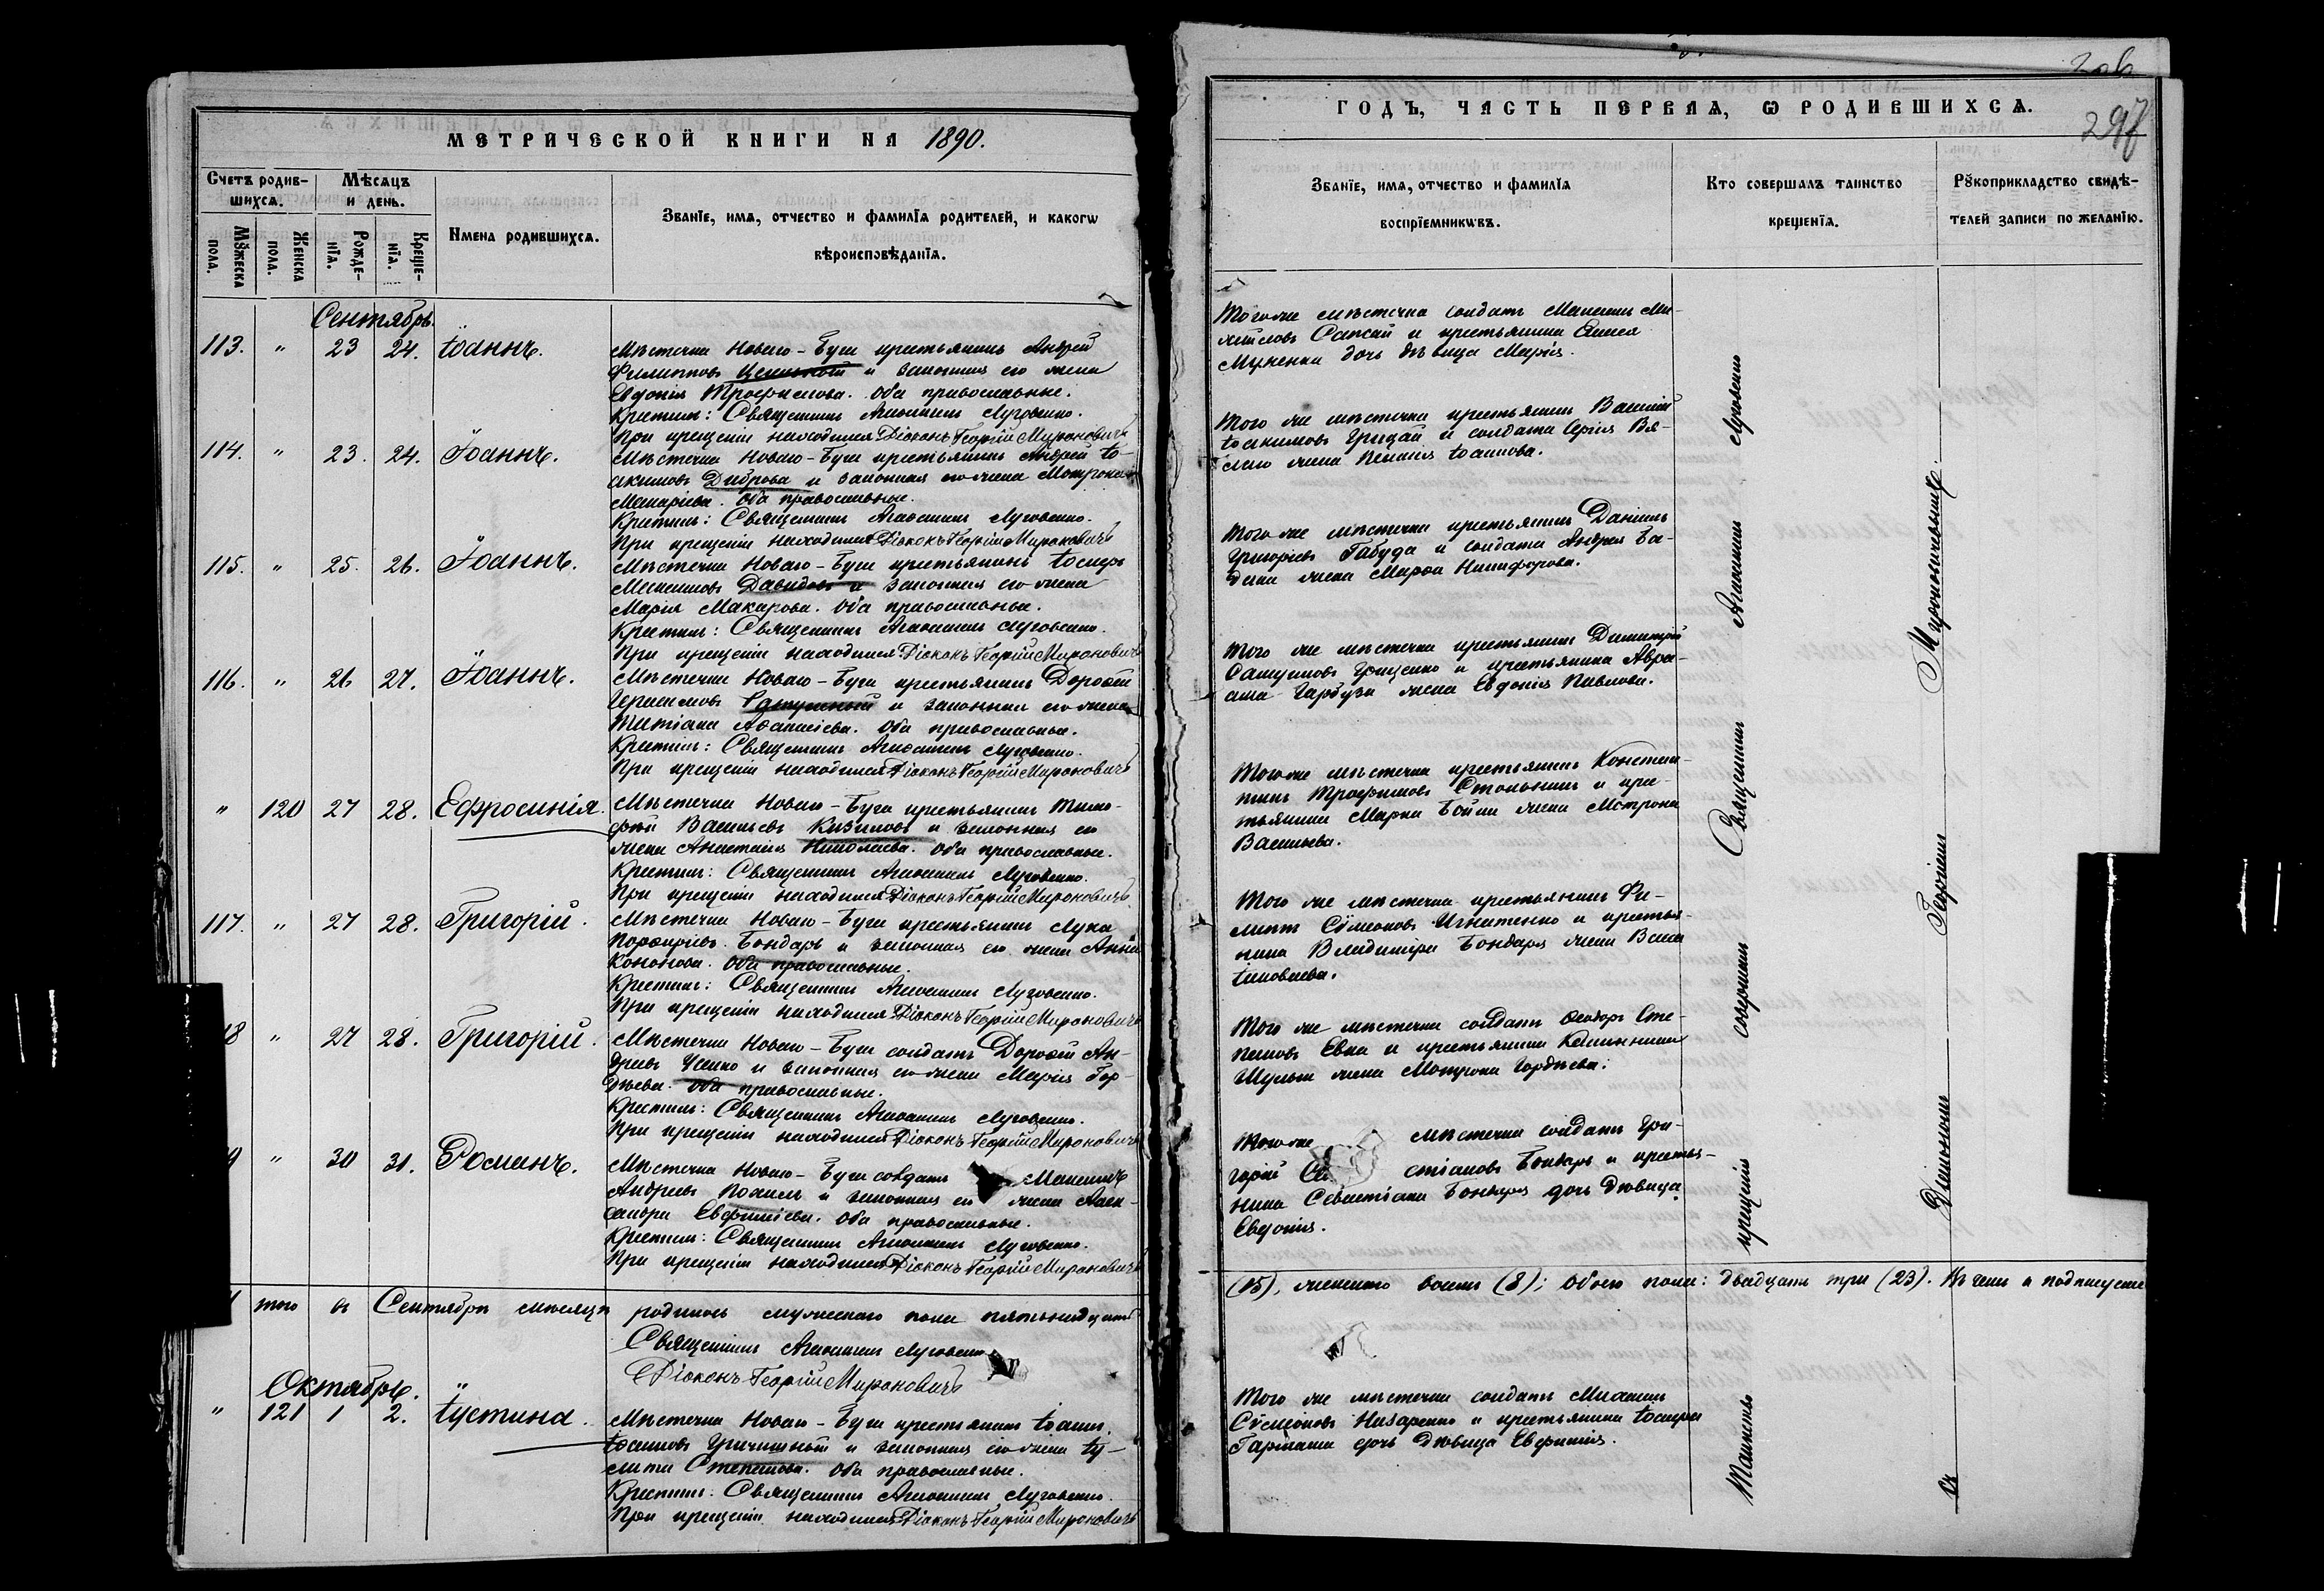 МЕТРИЧЕСКОЙ КНИГИ НА 1890.
Счетъ родив-
шихсѧ.
Мѣсѧцъ
и день.
Имена родившихсѧ.
Званїе, имѧ, отчество и фамилїѧ родителей, и какогѡ
вѣроисповѣданїѧ.
Мꙋжеска
пола.
Женска
пола.
Рожде-
нїѧ.
Креще-
нїѧ.
Сентябрь.
113. " 23 24. Іоаннъ. Мѣстечка Новаго-Буга крестьянинъ Андрей
Филипповъ и законная его жена
Евдокія Трофимова. Оба православные.
Крестилъ: Священникъ Аѳанасій Луговенко.
При крещеніи находился Діаконъ Георгій Мироновичъ
114. " 23. 24. Іоаннъ. Мѣстечка Новаго-Буга крестьянинъ Андрей Іо-
акимовъ Диброва и законная его жена Мотрона
Макаріева. Оба православные.
Крестилъ: Священникъ Аѳанасій Луговенко.
При крещеніи находился Діаконъ Георгій Мироновичъ
115. " 25. 26. Іоаннъ. Мѣстечка Новаго-Буга крестьянинъ Іосифъ
Давидовъ и законная его жена
Марія Макарова. Оба православные.
Крестилъ: Священникъ Аѳанасій Луговенко.
При крещеніи находился Діаконъ Георгій Мироновичъ
116. " 26 27. Іоаннъ. Мѣстечка Новаго-Буга крестьянинъ Дороѳей
Герасимовъ и законная его жена
Татіана Аѳанасіева. Оба православные.
Крестилъ: Священникъ Аѳанасій Луговенко.
При крещеніи находился Діаконъ Георгій Мироновичъ
" 120 27 28. Ефросинія. Мѣстечка Новаго-Буга крестьянинъ Тимо-
фей Васильевъ Казимовъ и законная его
жена Анастасія Николаева. Оба православные.
Крестилъ: Священникъ Аѳанасій Луговенко.
При крещеніи находился Діаконъ Георгій Мироновичъ
117. " 27 28. Григорій. Мѣстечка Новаго-Буга крестьянинъ Лука
Порфиріевъ Бондарь и законная его жена Анна
Кононова. Оба православные.
Крестилъ: Священникъ Аѳанасій Луговенко.
При крещеніи находился Діаконъ Георгій Мироновичъ
8 " 27 28. Григорій. Мѣстечка Новаго-Буга солдатъ Дороѳей Ан-
дреевъ и законная его жена Марія Гор-
дѣева. Оба православные.
Крестилъ: Священникъ Аѳанасій Луговенко.
При крещеніи находился Діаконъ Георгій Мироновичъ
9 " 30 31. Романъ. Мѣстечка Новаго-Буга солдатъ Максимъ
Андреевъ Похилъ и законная его жена Алек-
сандра Евфиміева. Оба православные.
Крестилъ: Священникъ Аѳанасій Луговенко.
При крещеніи находился Діаконъ Георгій Мироновичъ
того въ Сентябрѣ мѣсяцѣ родилось мужескаго пола пятьнадцать
Священникъ Аѳанасій Луговенко
Діаконъ Георгій Мироновичъ
Октябрь.
" 121 1 2. Іустина. Мѣстечка Новаго-Буга крестьянинъ Іоаннъ
Іоанновъ и законная его жена Іу-
литта Степанова. Оба православные.
Крестилъ: Священникъ Аѳанасій Луговенко.
При крещеніи находился Діаконъ Георгій Мироновичъ
ГОДЪ, ЧАСТЬ ПЕРВАѦ, Ѡ РОДИВШИХСѦ.
297
Званїе, имѧ, отчество и фамилїѧ
воспрїемникѡвъ.
Кто совершалъ таинство
крещенїѧ.
Рꙋкоприкладство свидѣ-
телей записи по желанїю.
Тогоже мѣстечка солдатъ Максимъ Ми-
хайловъ Сапсай и крестьянина
дочь дѣвица Марія.
Того же мѣстечка крестьянинъ Василій
Іоакимовъ Грицай и солдата Сергія
жена Пелагія Іоаннова.
Того же мѣстечка крестьянинъ Даніилъ
Григоріевъ Габуда и солдата Андрея Ба-
жена Марѳа Никифорова.
Того же мѣстечка крестьянинъ Димитрій
Самуиловъ Грищенко и крестьянина Авра-
ама Гарбуза жена Евдокія Павлова.
Тогоже мѣстечка крестьянинъ Констан-
тинъ Трофимовъ и крес-
тьянина Марка Бойка жена Мотрона
Васильева.
Того же мѣстечка крестьянинъ Фи-
липпъ Сѷмеоновъ Игнатенко и крестья-
нина Владиміра Бондаря жена Васса
Того же мѣстечка солдатъ Ѳеодоръ Сте-
пановъ и крестьянина
Шульги жена Мотрона Гордѣева.
Тогоже мѣстечка солдатъ Гри-
горій Се стіановъ Бондарь и крестья-
нина Севастіана Бондаря дочь дѣвица
Евдокія.
(15), женскаго восемь (8); обоего пола: двадцать три (23). Въ чемъ и подписуемся
Того же мѣстечка солдатъ Михаилъ
Сѷмеоновъ Назаренко и крестьянина Іосифа
Гармаша дочь дѣвица Евфимія.
Таинство крещенія совершалъ Священникъ Аѳанасій Луговенко
съ Діакономъ Георгіемъ Мироновичемъ.